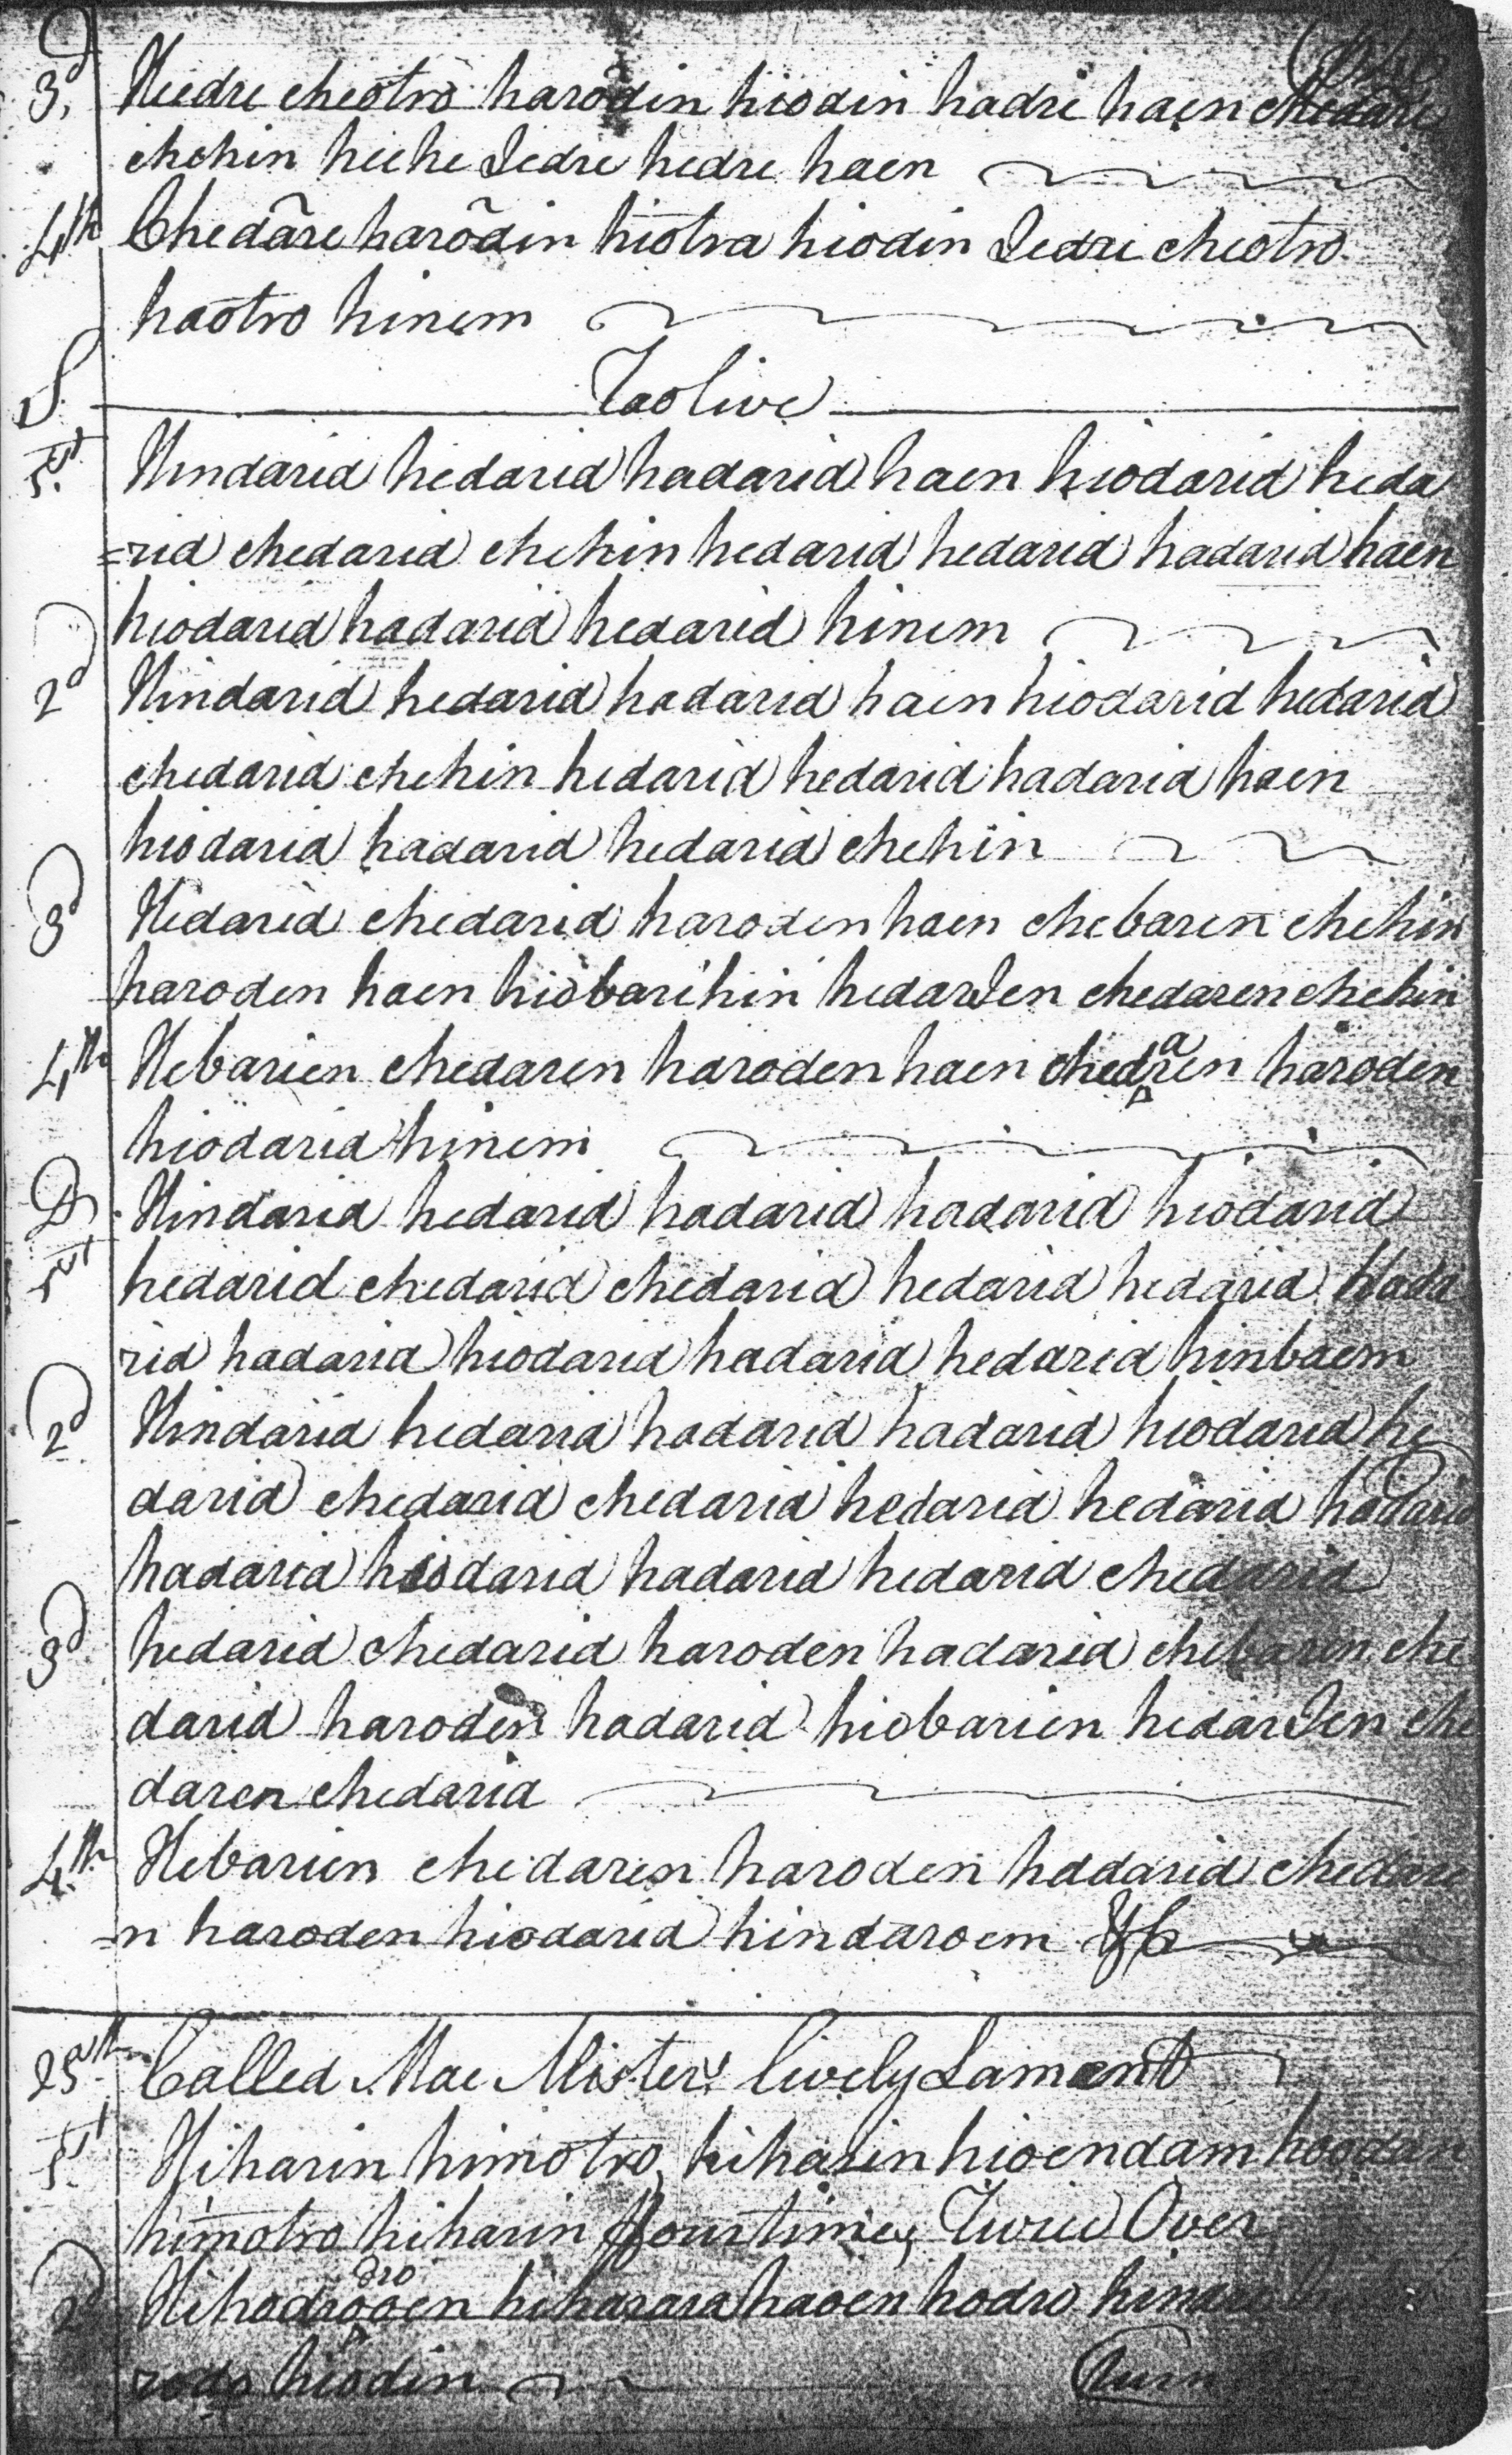 3d Hiedre cheotro harodin hiodin hadre haen chedare
chehin hiche Iedre hedre haen
4th Chedare harodin hiotra hiodin Iedre cheotro
haotro hinem
S Taolive
1st Hindarid hedarid hadarid haen hiodarid heda
=rid chedarid chehin hedarid hedarid hadarid haen
hiodarid hadarid hedarid hinem
2d Hindarid hedarid hadarid haen hiodarid hedarid
chedarid chehin hedarid hedarid hadarid haen
hiodarid hadarid hedarid chehin
3d Hidarid chedarid haroden haen chebaren chehin
haroden haen hiobarihin hedarIen chedaren chehin
4th Hebarien chedaren haroden haen chedaren haroden
hiodarid hinem
D Hindarid hedarid hadarid hadarid hiodarid
1st hedarid chedarid chedarid hedarid hedarid hada
rid hadarid hiodarid hadarid hedarid hinbaem
2d Hindarid hedarid hadarid hadarid hiodarid he
darid chedarid chedarid hedarid hedarid hadarid
hadarid hiodarid hadarid hedarid chedarid
3d hedarid chedarid haroden hadarid chebaren che
darid haroden hadarid hiobarien hedarIen che
daren chedarid
4th Hebarien chedaren haroden hadarid chedare
=n haroden hiodarid hindaroem &c
25th Called Mac Misters lively Lament
1st Hiharin himotro, hiharin hioendam hoodan
himotro hiharin ffourtimes Twice Over
2d Hihodrodrooen hiharara haoen hodro
rodo hiodin Turn